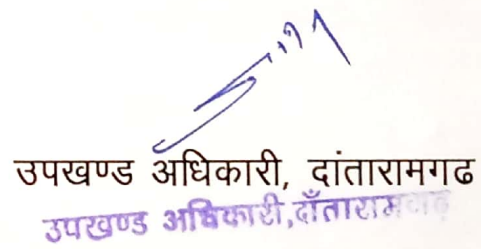 उपखण्ड अधिकारी, दांतारामगढ
उपखण्ड अधिकारी,दाँतारामगढ़